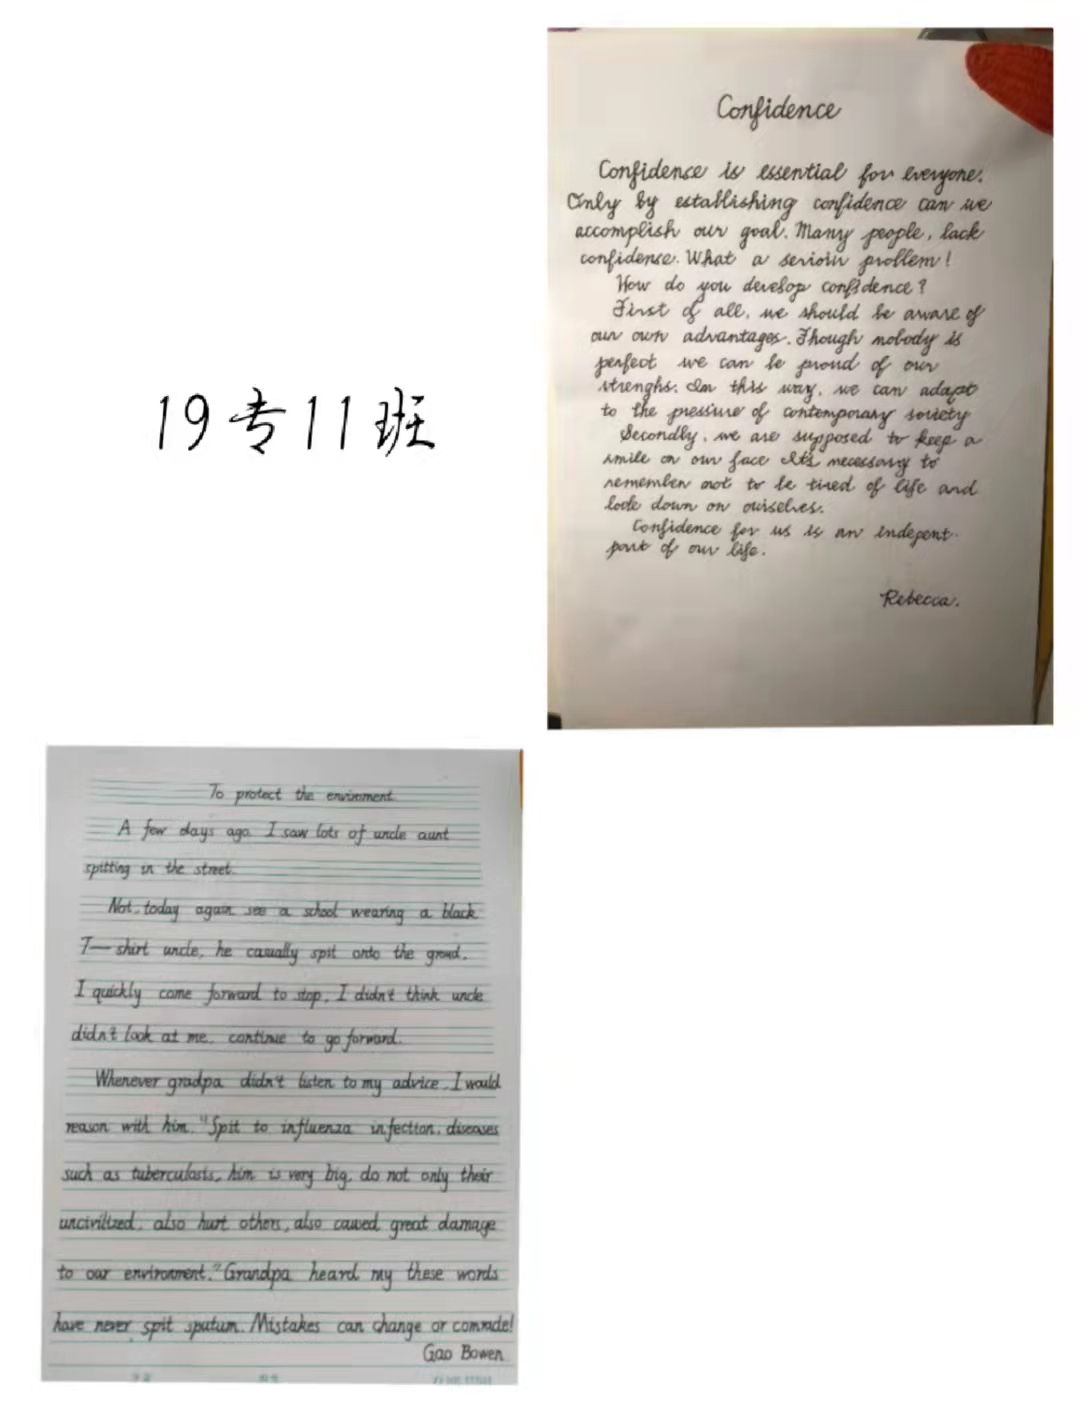 19专11班
Confidence
Confidence is essential for everyone.
Only by establishing confidence can we
accomplish our goal. Many people, lack
confidence. What a serioin problem!
How do you develop confidence?
First of all, we should be aware of
our own advantages. Though nobody is
perfect we can be proud of our
strenghs. In this way, we can adapt
to the pressure of contemporary soviety
Secondly, we are supposed to keep a
smile on our face It's necessary to
remember not to be tired of life and
look down on ourselves.
Confidence for us is an indepent
part of our life.
Rebecca.
To protect the envirnment.
A few days ago. I saw lots of uncle aunt
spitting in the street.
Not, today again see a school wearing a black
T-shirt uncle, he casually spit onto the grond.
I quickly come forward to stop, I didn't think uncle
didn't look at me, continue to go forward.
Whenever gradpa didn't listen to my advice, I would
reason with him. "Spit to influenza infection, diseases
such as tuberculosis, him is very big, do not only their
uncivilized, also hurt others, also caused great damage
to our environment." Grandpa heard my these words
have never spit sputum. Mistakes can change or comrade!
Gao Bowen